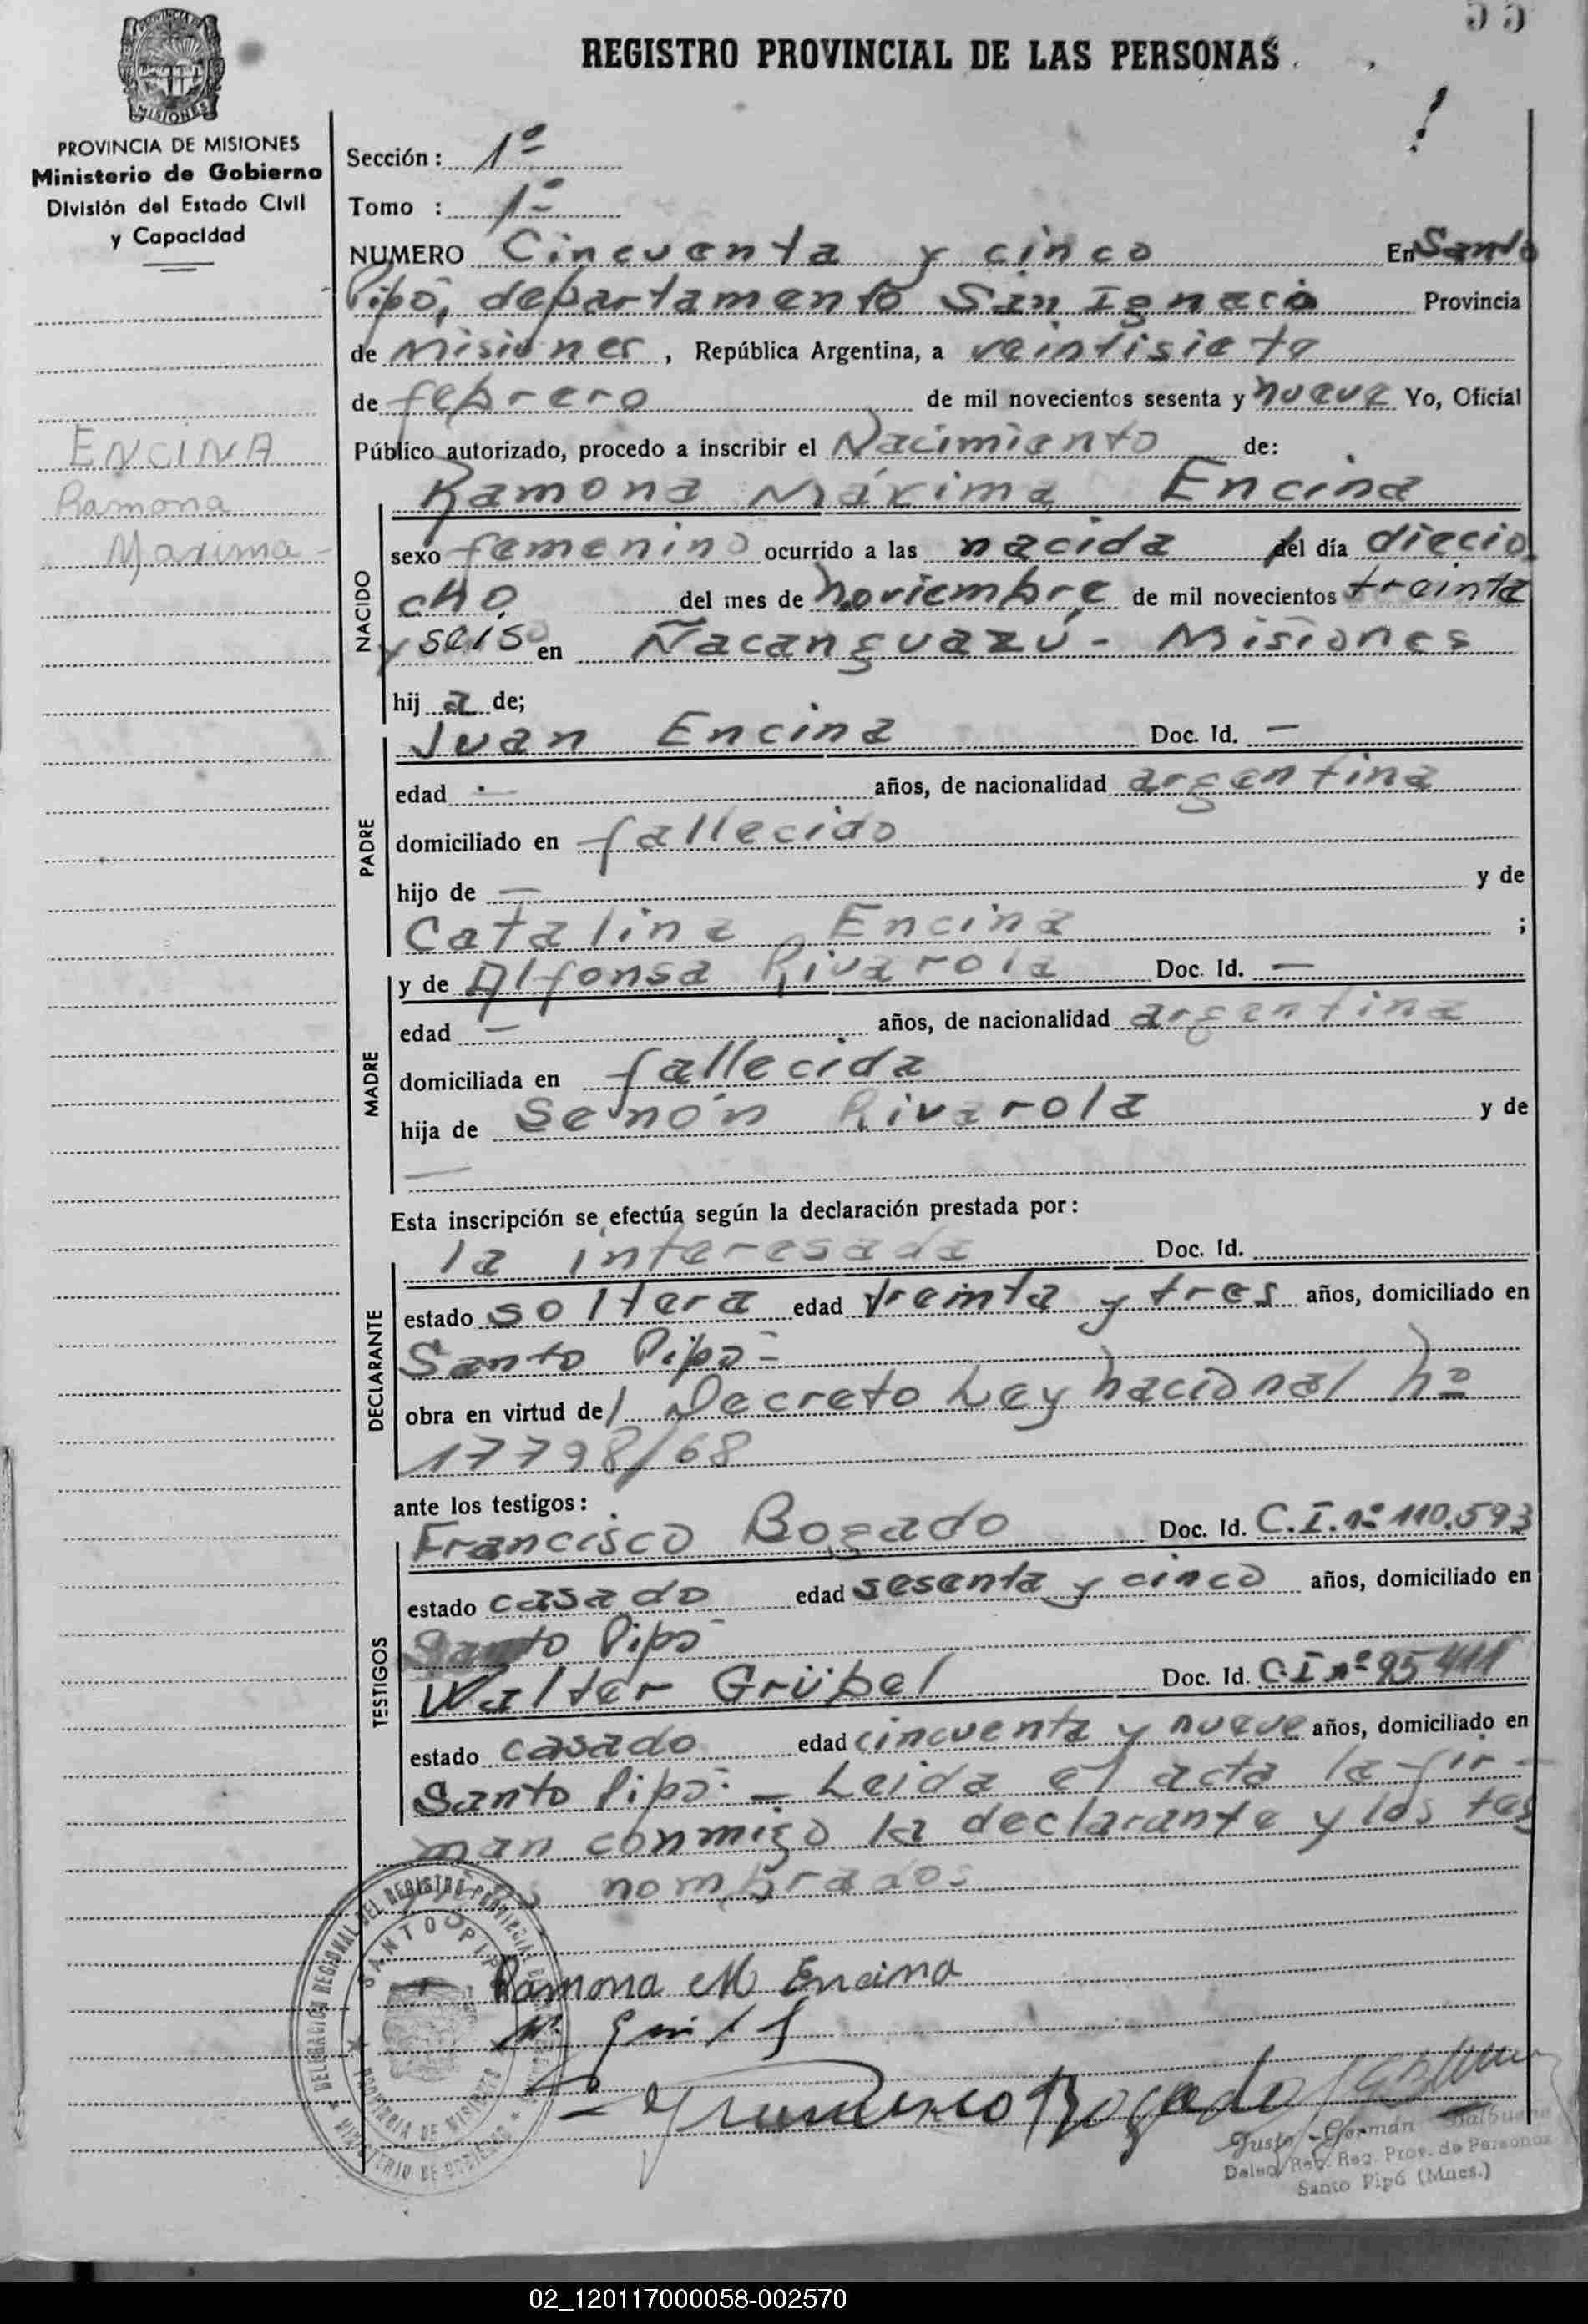 55
REGISTRO PROVINCIAL DE LAS PERSONAS
PROVINCIA DE MISIONES
MISIONES
PROVINCIA DE MISIONES
Ministerio de Gobierno
División del Estado Civil
y Capacidad
ENCINA
Ramona
Maxima -
Sección: 1º
Tomo : 1º
NUMERO Cincuenta y cinco En Santo
Pipó, departamento San Ignacio Provincia
de Misiones, República Argentina, a veintisiete
de febrero de mil novecientos sesenta y nueve Yo, Oficial
Público autorizado, procedo a inscribir el Nacimiento de:
Ramona Máxima Encina
NACIDO
sexo femenino ocurrido a las nacida del día diecio
cho del mes de noviembre de mil novecientos treinta
y seis en Ñacanguazú - Misiones
hij a de;
PADRE
Juan Encina Doc. Id. —
edad — años, de nacionalidad argentina
domiciliado en fallecido
hijo de — y de
Catalina Encina ;
MADRE
y de Alfonsa Rivarola Doc. Id. —
edad — años, de nacionalidad argentina
domiciliada en fallecida
hija de Senón Rivarola y de
—
Esta inscripción se efectúa según la declaración prestada por:
DECLARANTE
la interesada Doc. Id.
estado soltera edad treinta y tres años, domiciliado en
Santo Pipó -
obra en virtud del Decreto Ley nacional nº
17798/68
ante los testigos:
TESTIGOS
Francisco Bogado Doc. Id. C.I. nº 110.593
estado casado edad sesenta y cinco años, domiciliado en
Santo Pipó
Walter Grübel Doc. Id. C.I nº 95411
estado casado edad cincuenta y nueve años, domiciliado en
Santo Pipó. - Leida el acta la fir-
man conmigo la declarante y los tes
nombrados
DELEGACION REGIONAL DEL REGISTRO PROVINCIAL DE
SANTO PIPO
PROVINCIA DE MISIONES
MINISTERIO DE GOBIERNO
Ramona M Encina
Francisco Bogado
Justo Germán Balbuena
Deleg. Reg. Reg. Prov. de Personas
Santo Pipó (Mnes.)
02_120117000058-002570